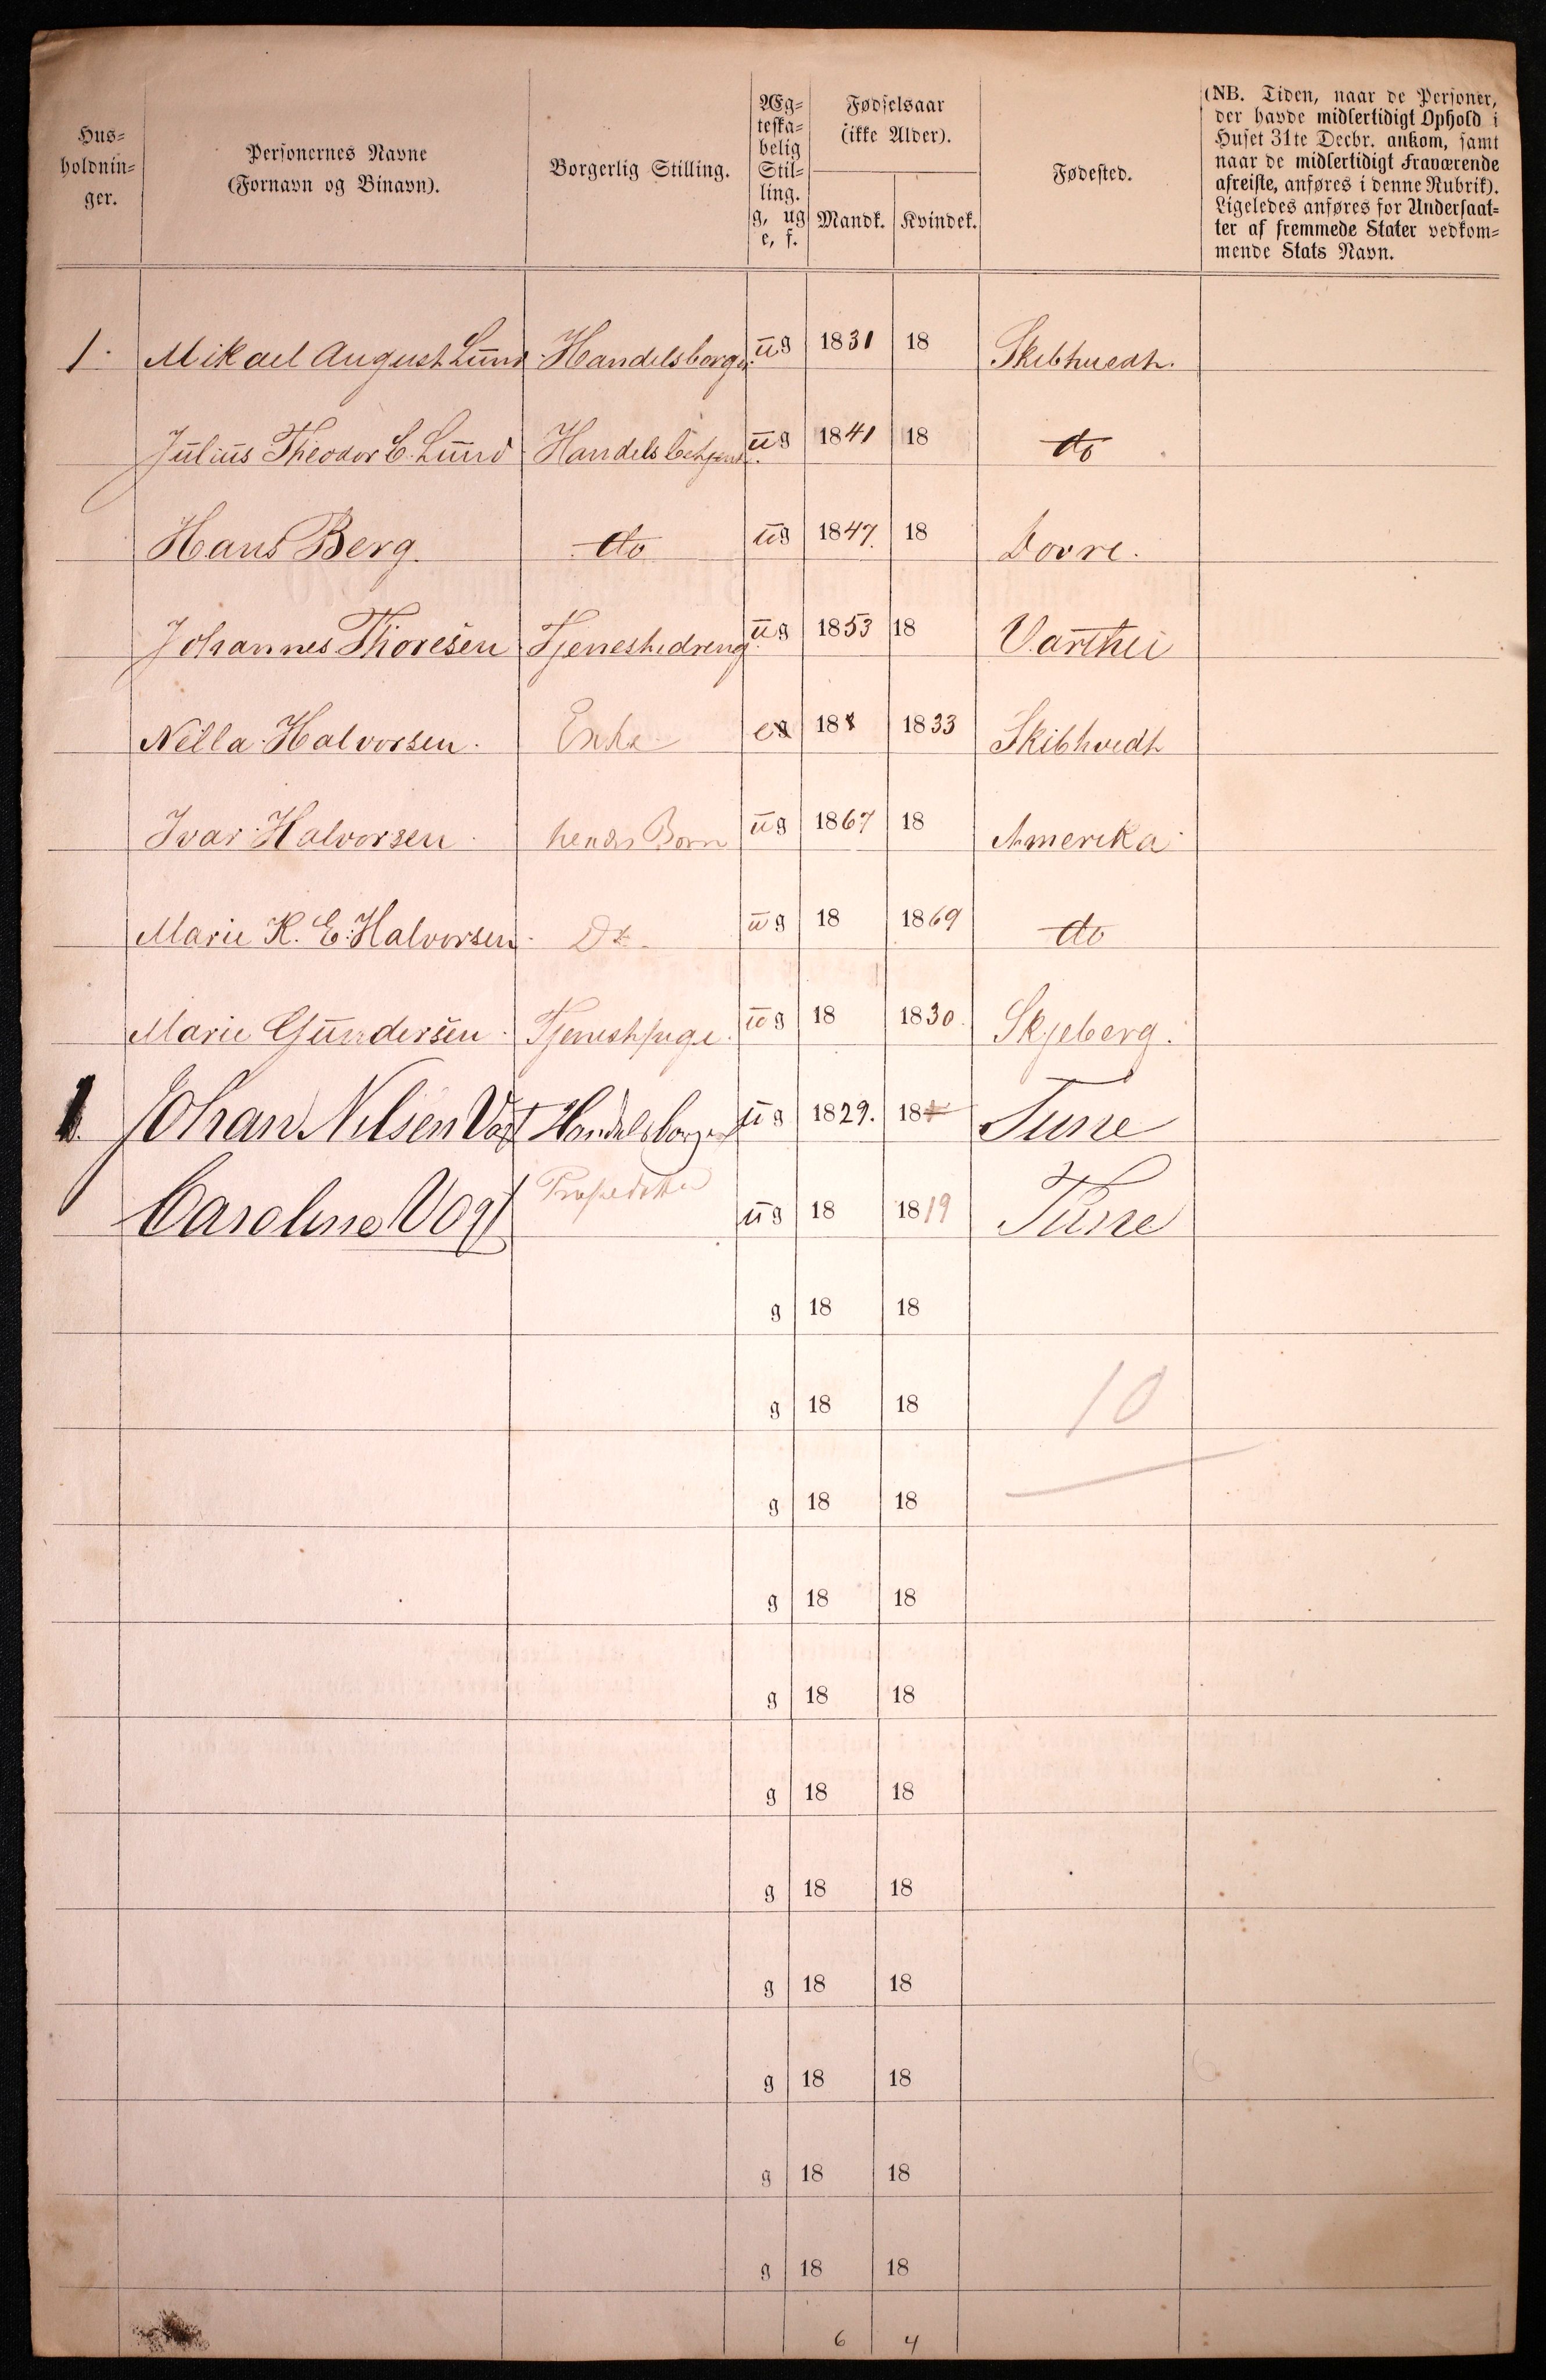 Hus-
holdnin-
ger.
Personernes Navne
(Fornavn og Binavn).
Borgerlig Stilling.
Æg-
teska-
belig
Stil-
ling.
g, ug
e, f.
Fødselsaar
(ikke Alder).
Mandk. Kvindek.
Fødested.
(NB. Tiden, naar de Personer,
der havde midlertidigt Ophold i
Huset 31te Decbr. ankom, samt
naar de midlertidigt Fraværende
afreiste, anføres i denne Rubrik).
Ligeledes anføres for Undersaat-
ter af fremmede Stater vedkom-
mende Stats Navn.
1. Mikael August Lund Handelsborger ug 1831 18 Skibhvedt.
Julius Theodor C. Lund Handelsbetjent. ug 1841 18 do
Hans Berg. do ug 1847. 18 Dovre.
Johannes Thoresen Tjenestedreng ug 1853 18 Varthei
Nella Halvorsen. Enke e 18 1833 Skibhvedt
Ivar Halvorsen hendes Børn ug 1867 18 Amerika
Marie K. E. Halvorsen. Do ug 18 1869 do
Marie Gundersen. Tjenestpige. ug 18 1830. Skjeberg.
1. Johan Nilsen Vogt Handelsborger ug 1829. 18 Tune
Caroline Vogt ug 18 1819 Tune
g 18 18
g 18 18 10
g 18 18
g 18 18
g 18 18
g 18 18
g 18 18
g 18 18
g 18 18
g 18 18
g 18 18
6 4